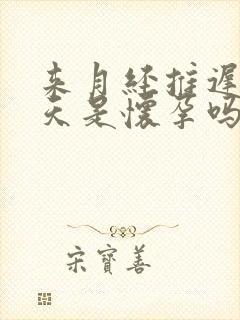 来月经推迟
天是怀孕吗
宋寳善